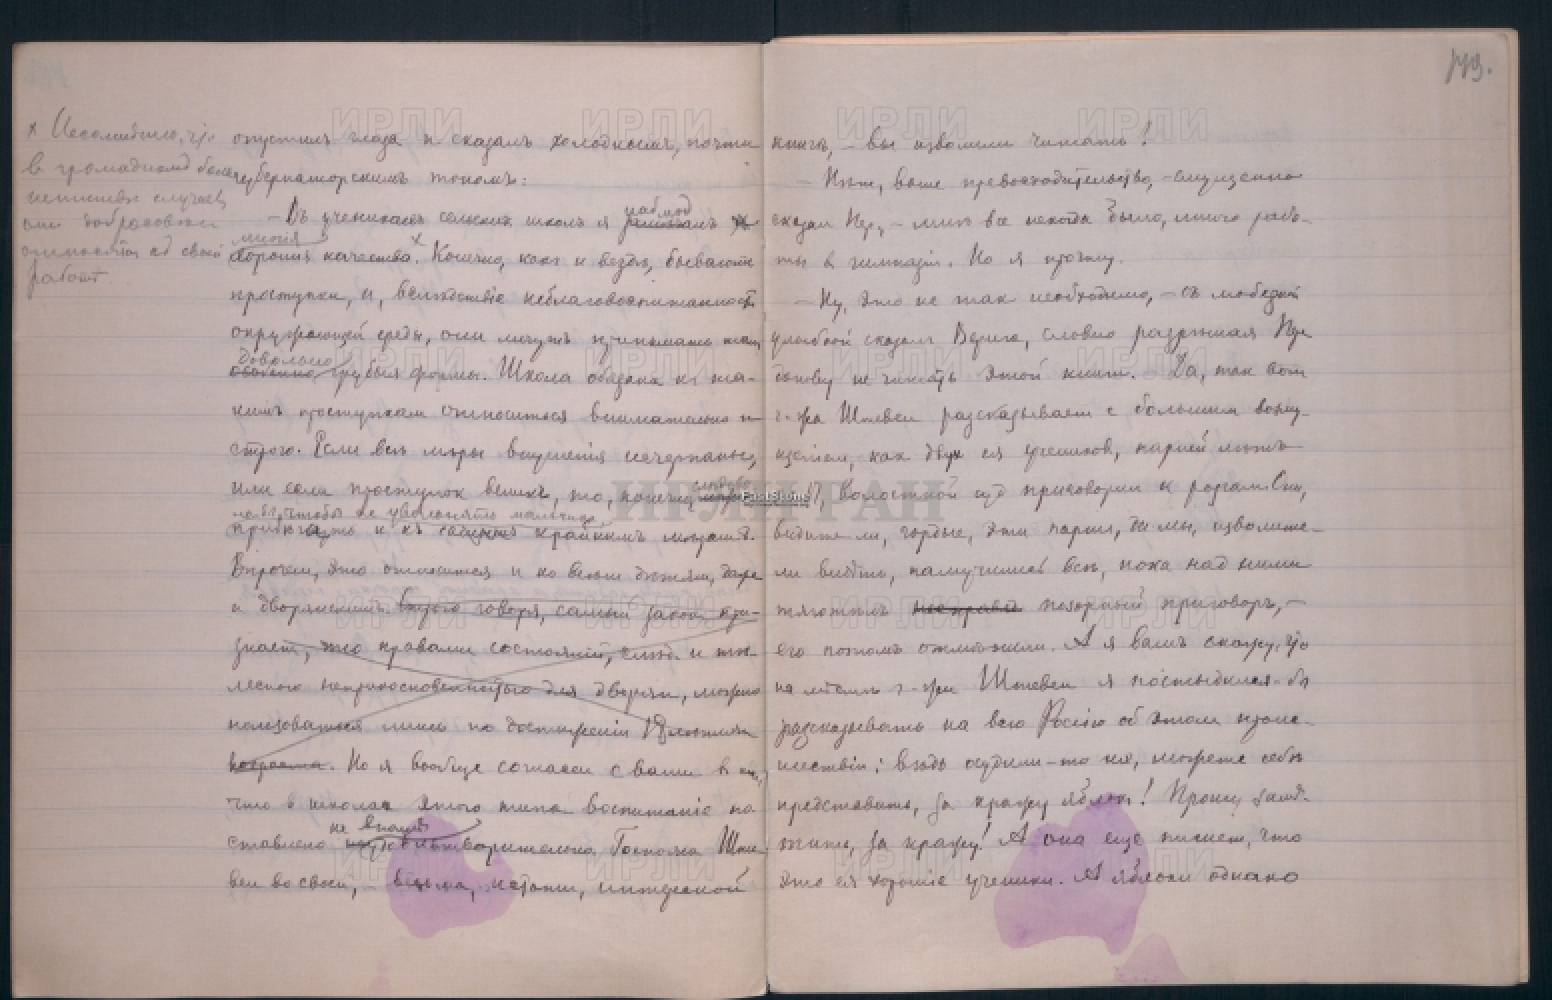 113.
× Несомненно, что
в громадном боль-
шинстве случаев
они добросовестно
относятся къ своей
работе.
опустилъ глаза и сказалъ холоднымъ, почти
губернаторскимъ тономъ:
— Въ ученикахъ сельскихъ школъ я наблюд
многія
хорошія качества. × Конечно, какъ и везде, бываютъ
проступки, и, вследствіе неблаговоспитанности
окружающей среды, они могутъ принимать тамъ
довольно
особенно грубыя формы. Школа обязана къ та-
кимъ проступкамъ относиться внимательно и
строго. Если все меры внушенія исчерпаны,
или если проступокъ великъ, то, конечно, следов
ало бы, чтобы не увольнять мальчика,
прибегать и къ крайнимъ мерамъ.
Впрочем, это относится и ко всемъ детямъ, даже
и дворянскимъ. Строго говоря, самый законъ при-
знает, что правами состояній, след. и те-
лесною неприкосновенностью для дворян, можно
пользоваться лишь по достиженіи летняго
возраста. Но я вообще согласен с вами в том,
что в школах этого типа воспитаніе по
не вполне
ставлено удовлетворительно. Госпожа Ште-
вен во своей, — весьма, кстати, интересной
книге, — вы изволили читать?
— Нет, ваше превосходительство, — смущенно
сказал Пер, — мне все некогда было, много рабо-
ты в гимназіи. Но я прочту.
— Ну, это не так необходимо, — съ любезной
улыбкой сказалъ Верига, словно разрешая Пере
донову не читать этой книги. — Да, так вот
г-жа Штевен разсказывает с большим возму-
щеніем, как двух ея учеников, парней летъ
17, волостной суд приговорил к розгам. Они,
видите ли, гордые, эти парни, да мы, изволите-
ли видеть, намучились все, пока над ними
тяготелъ позорный приговоръ, —
его потомъ отменили. А я вамъ скажу, что
на месте г-жи Штевен я постыдился бы
разсказывать на всю Россію об этом проис-
шествіи: ведь осудили-то их, можете себе
представить, за кражу яблок! Прошу заме-
тить, за кражу! А она еще пишет, что
это ея хорошіе ученики. А яблоки однако